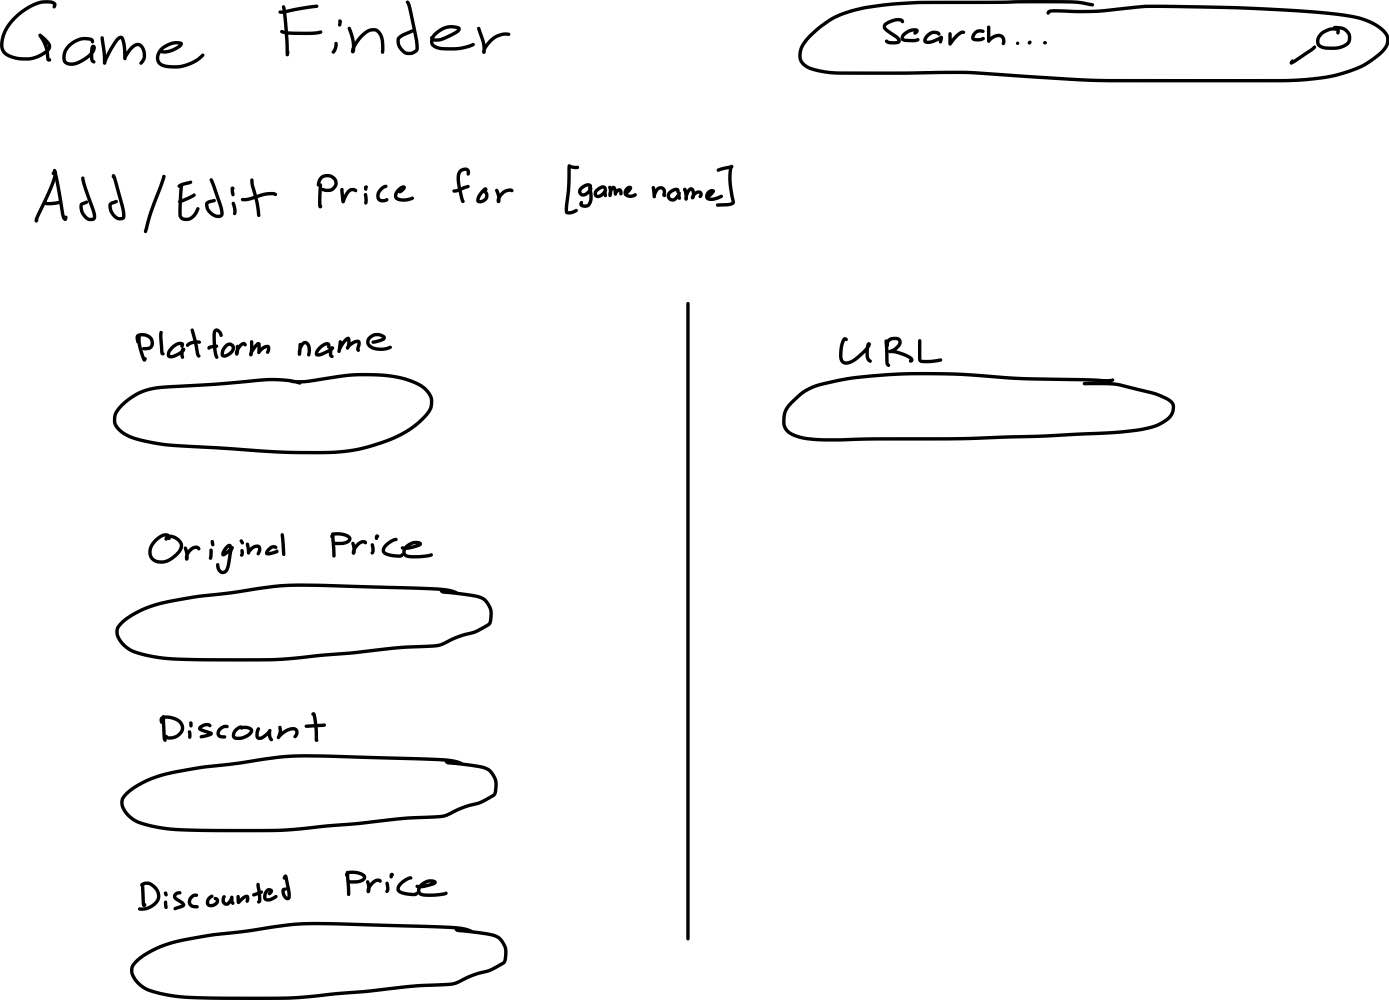 Game Finder
Search...
Add/Edit Price for [game name]
Platform name
URL
Original Price
Discount
Discounted Price